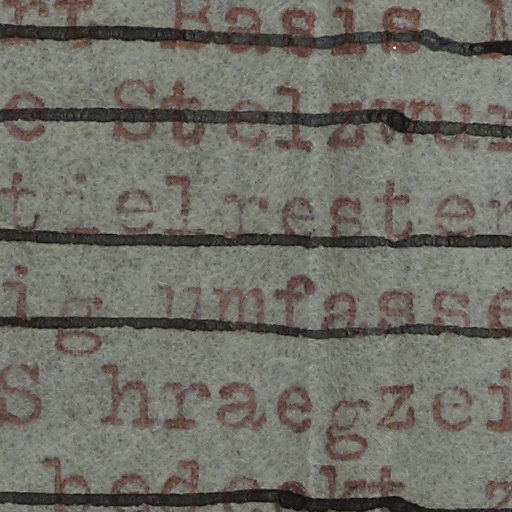 rt Basis
e Stelzwur
tielresten
ig umfasse
S hraegzei
bedeckt z